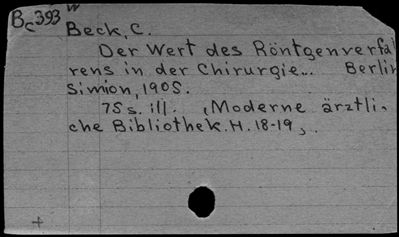 Bc393 w
Beck, C.
Der Wert des Röntgenverfah
rens in der Chirurgie... Berlin
Simion, 1905.
75 s. ill. (Moderne ärztli-
che Bibliothek. H. 18-19).